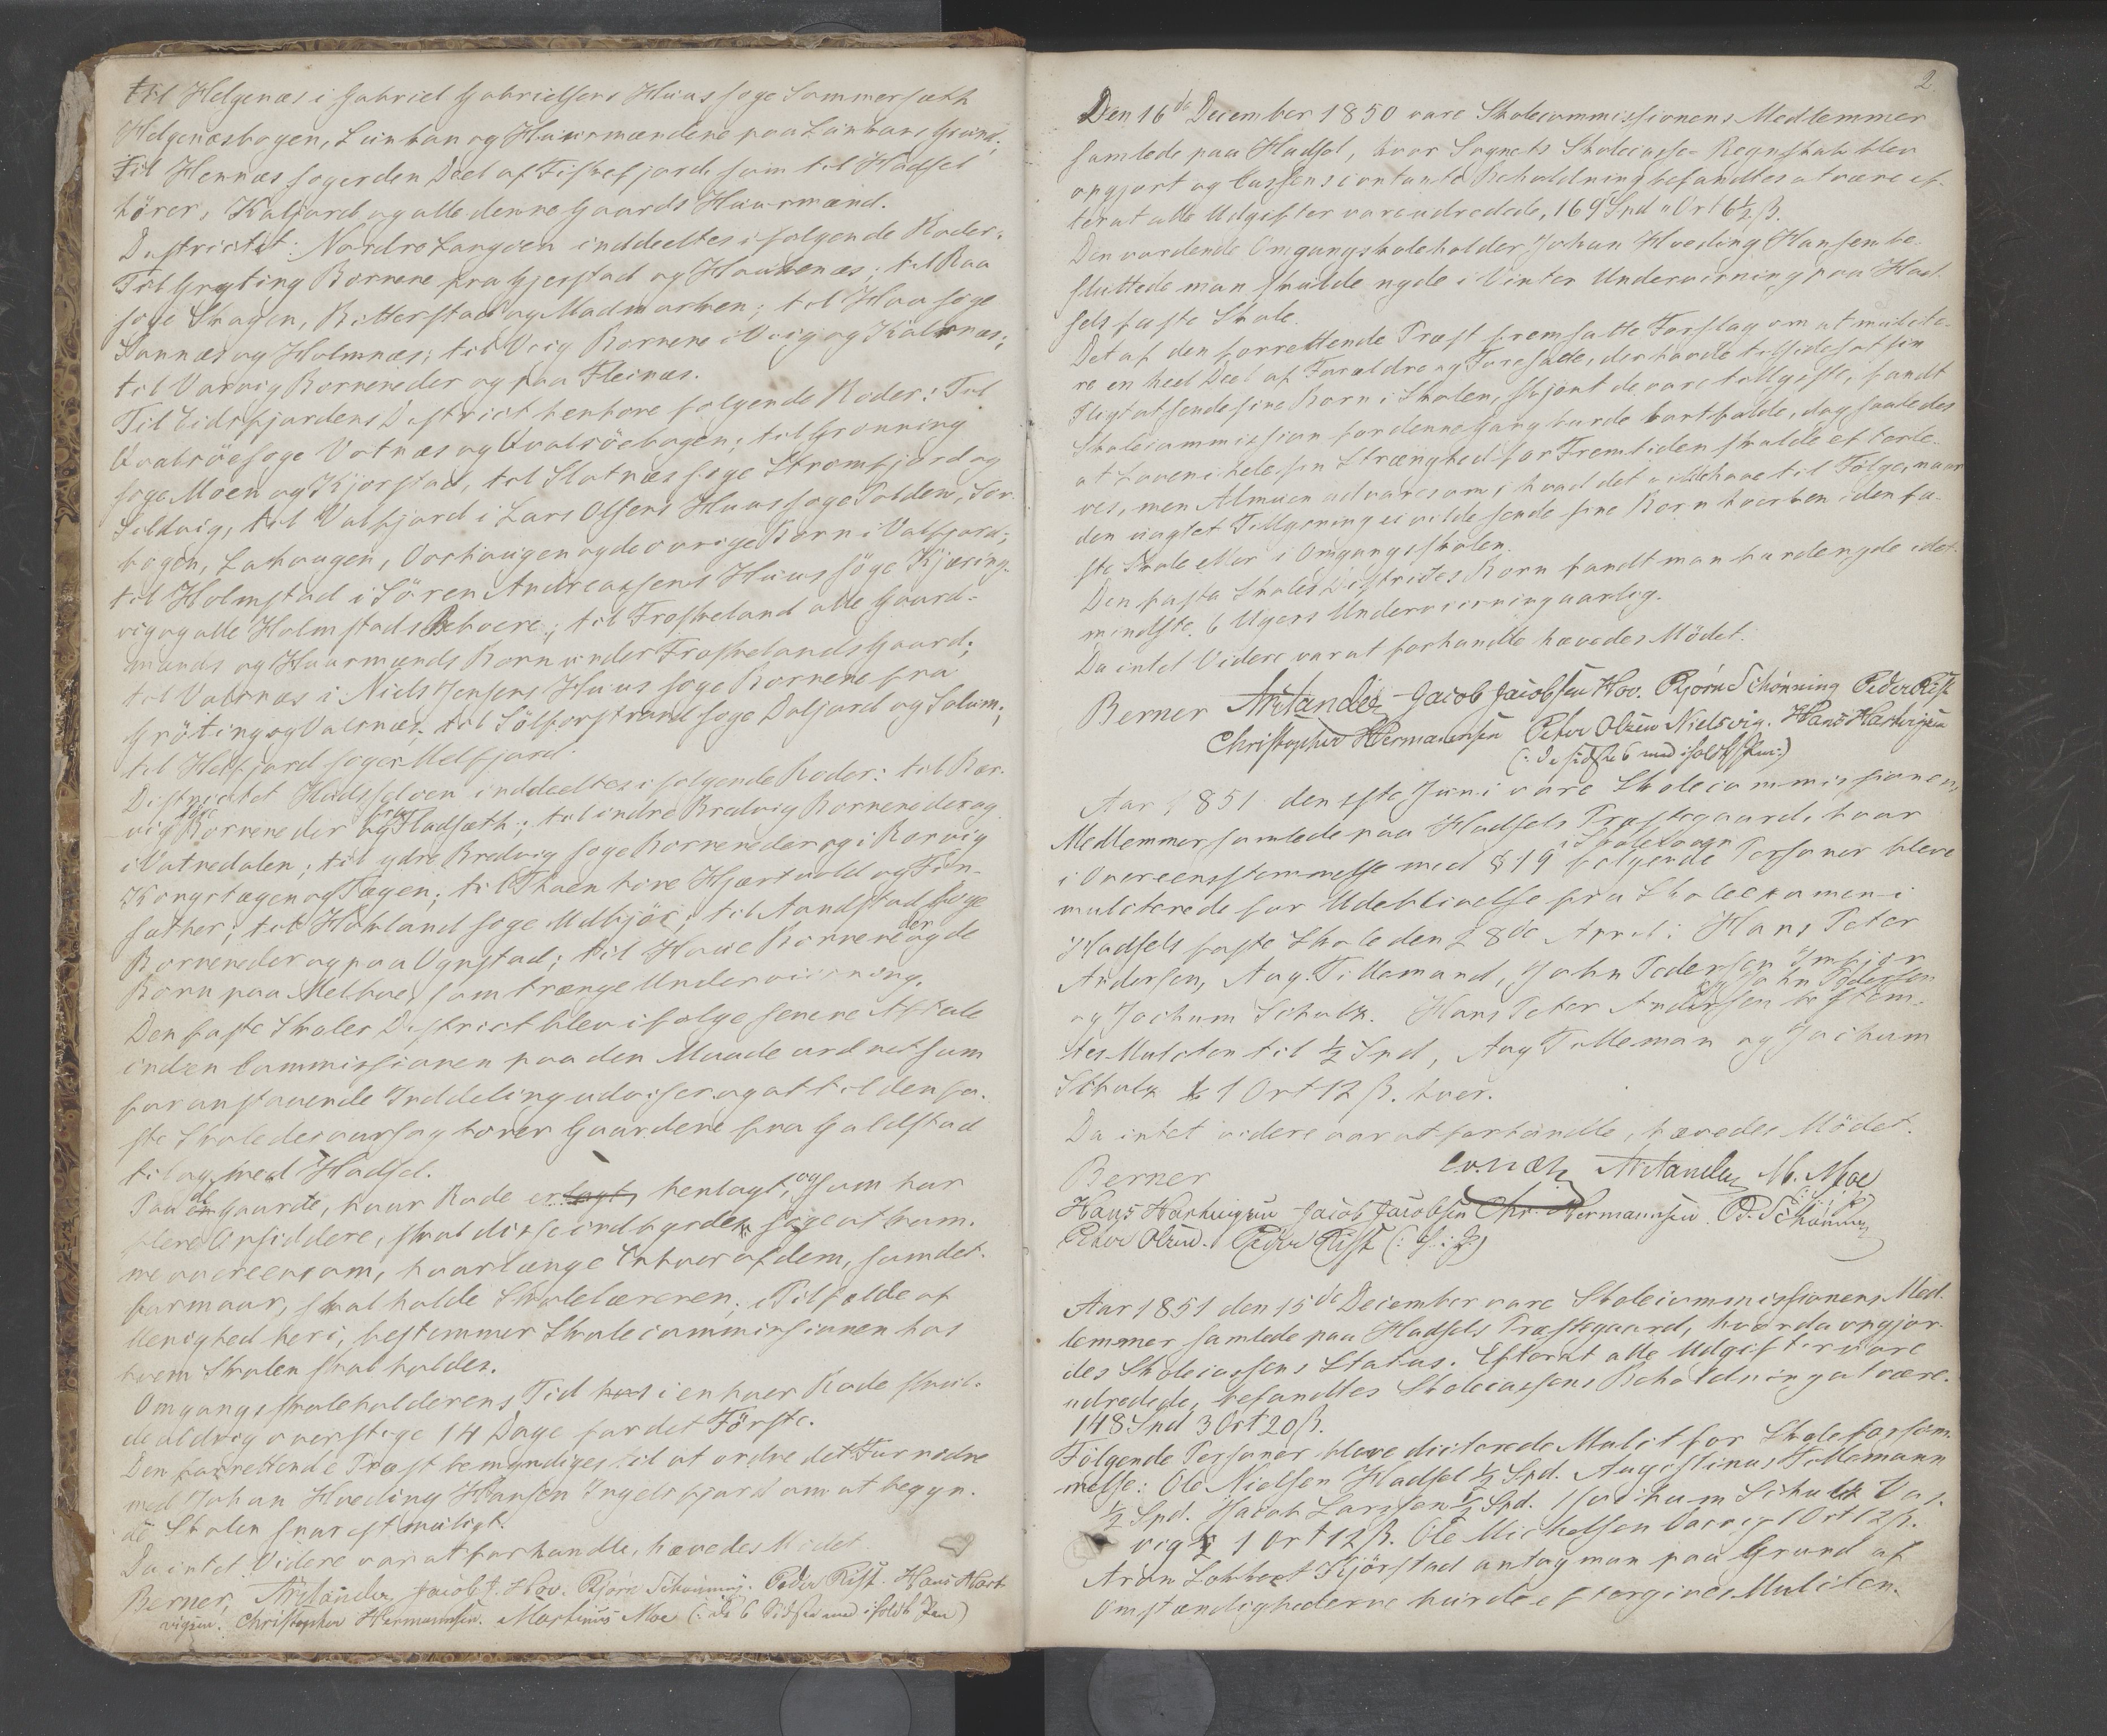 til Helgenæs i Gabriel Gabrielsens Huus søge Sommersæth
Helgenæsbogen, Lunkan og Huusmændene paa Lunkans Grund;
til Hennæs søger den Deel af Fiskefjord, som til Hadsel
hører, Kaljord og alle denne Gaards Huusmænd.
Districtet: Nordre Langøen inddeeltes i følgende Roder:
Til Gryting Børnene fra Gjerstad og Haukenæs; til Raa
søge Skagen, Ritterstad og Madmarken; til Haa søge
Sannæs og Holmnæs; til Vig Børnene i Vig og Kalsnæs;
til Varvig Børnene der og paa Fleinæs.
Til Eidsfjordens District henhøre følgende Roder: Til
Qvalsöe søge Votnæs og Qvalsöebogen; til Grønning
søge Moen og Kjørstad, til Slotnæs søge Strømfjord og
Sildvig, til Valfjord i Lars Olsens Huus søge Polden, Sør-
bogen, Lahaugen, Vorhaugen og de øvrige Børn i Valfjord;
til Holmstad i Sören Andreassens Huus söge Kjæring-
vig og alle Holmstads Beboere; til Froskeland alle Gaard-
mands og Huusmands Børn under Froskelands Gaard;
til Valsnæs i Niels Jensens Huus søge Børnene fra
Gröting og Valsnæs; til Sölforstrand søge Daljord og Selum;
til Melfjord søger Melfjord.
Districtet Hadseløen inddeeltes i følgende Roder: til Bær-
vig søge Børnene der og fra Hadsæth; til indre Bredvig Børnene der og
i Vatnedalen; til ydre Bredvig søge Børnene der og i Børvig
Kongstegen og Tægen; til Thoen høre Hjertvold og Fin-
sæther; til Hokland søge Udkjöi; til Aandstad søge
Børnene der og paa Vynstad; til Haue Børnene der og de
Børn paa Melboe, som trænge Underviisning.
Den faste Skoles District blev ifølge senere Aftale
inden Commissionen paa den Maade ordnet som
foranstaaende Inddeling udviser og at til den fa-
ste Skole desaarsag hører Gaardene fra Galdstad
til og med Hadsel.
Paa de Gaarde, hvor Rode er lagt henlagt, og som har
flere Opsiddere, skal disse indbyrdes søge at kom-
me overeens om, hvorlænge Enhver af dem, som det
formaar, skal holde Skolelæreren. I Tilfælde af
Uenighed heri, bestemmer Skolecommissionen hos
hvem Skolen skal holdes.
Omgangsskoleholderens Tid hos i enhver Rode skul-
de aldrig overstige 14 Dage for det Förste.
Den forrettende Præst bemyndiges til at ordne det Fornødne
med Johan Hveding Hansen Ingelsfjord om at begyn-
de Skolen snarest muligt.
Da intet Videre var at forhandle, hævedes Mødet.
Berner, Arctander Jacob J. Hov. Bjørn Schønning. Peder Rist. Hans Hart-
vigsen. Christopher Hermannsen. Martinus Moe (: de 6 Sidste med iholdt Pen)
2.
Den 16de December 1850 vare Skolecommissionens Medlemmer
samlede paa Hadsel, hvor Sognets Skolecasse-Regnskab blev
opgjort og Cassens contante Beholdning befandtes at være ef-
terat alle Udgifter vare udredede, 169 Spd " Ort 6½ ß.
Den vordende Omgangsskoleholder Johan Hveding Hansen be-
sluttede man skulde nyde i Vinter Underviisning paa Had-
sels faste Skole.
Det af den forrettende Præst fremsatte Forslag om at mulcte-
re en heel Deel af Forældre og Foresatte, der havde tilsidesat sin
Pligt at sende sine Børn i Skolen, skjønt de vare tillyste, fandt
Skolecommission for denne Gang burde bortfalde, dog saaledes
at Loven i hele sin Strænghed for Fremtiden skulde efterle-
ves, men Almuen advares om, hvad det vil have til Følge, naar
den uagtet Tillysning ei vilde sende sine Børn hverken i den fa-
ste Skole eller i Omgangsskolen.
Den faste Skoles Districts Børn fandt man burde nyde idet-
mindste 6 Ugers Underviisning aarlig.
Da intet Videre var at forhandle hævedes Mödet.
Berner Arctander Jacob Jacobsen Hov. Bjørn Schønning Peder Rist
Christopher Hermannsen Peter Olsen Nielsvig. Hans Hartvigsen
(: de sidste 6 med iholdt Pen:)
Aar 1851 den 1ste Juni vare Skolecommissionens
Medlemmer samlede paa Hadsels Præstegaard, hvor
i Overeensstemmelse med § 19 i Skoleloven følgende Personer bleve
mulcterede for Udeblivelse fra Skoleexamen i
Hadsels faste Skole den 28de April: Hans Peter
Andersen, Aug. Tillemand, John Pedersen
og Jochum Schultz. Hans Peter Andersen og John Pedersen bestem-
tes Mulcten til ½ Spd, Aug Tilleman og Jochum
Schultz 1 Ort 12 ß. hver.
Da intet videre var at forhandle, hævedes Mödet.
Berner Arctander M. Moe
Hans Hartvigsen Jacob Jacobsen Chr. Hermannsen B. Schønning
Peter Olsen. Peder Rist
Aar 1851 den 15de December vare Skolecommissionens Med-
lemmer samlede paa Hadsels Præstegaard, hvor da opgjor-
des Skolecassens Status. Efterat alle Udgifter vare
udredede, befandtes Skolecassens Beholdning at være
148 Spd 3 Ort 20 ß.
Følgende Personer bleve dicterede Mulct for Skoleforsøm-
melse: Ole Nielsen Hadsel ½ Spd. Augustinus Tillemann
½ Spd. Jacob Larssen ½ Spd. Jochum Schultz Vas-
vig 1 Ort 12 ß. Ole Michelsen Varvig 1 Ort 12 ß.
Aron Kjörstad antog man paa Grund af
Omstændighederne burde eftergives Mulcten.